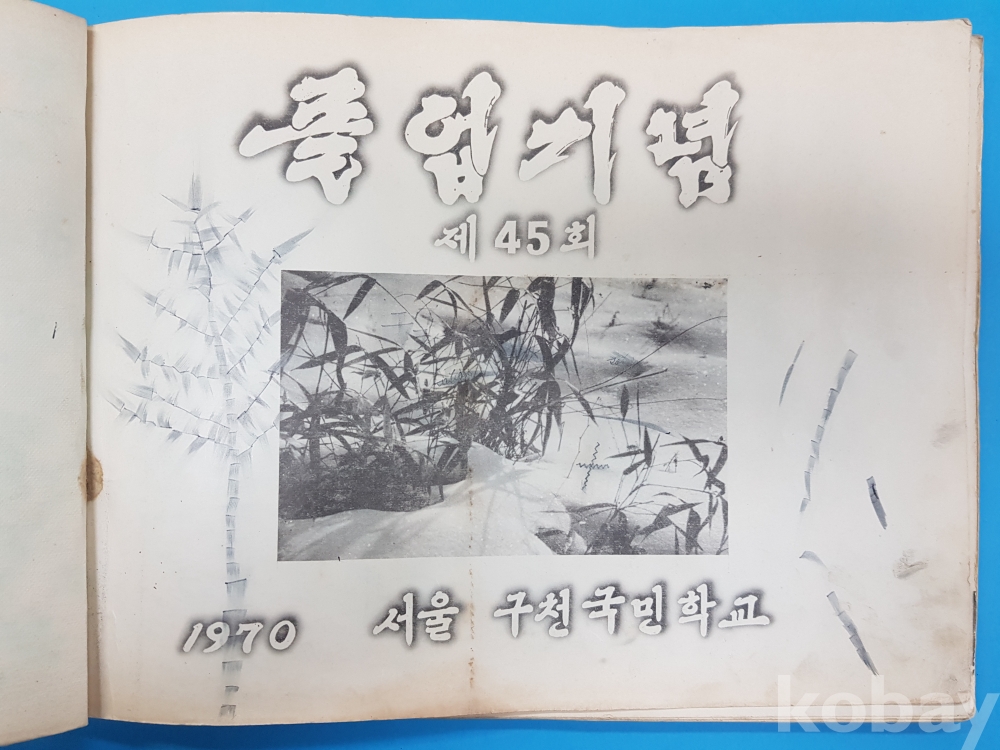 졸업기념
제45회
1970 서울 구천국민학교
kobay